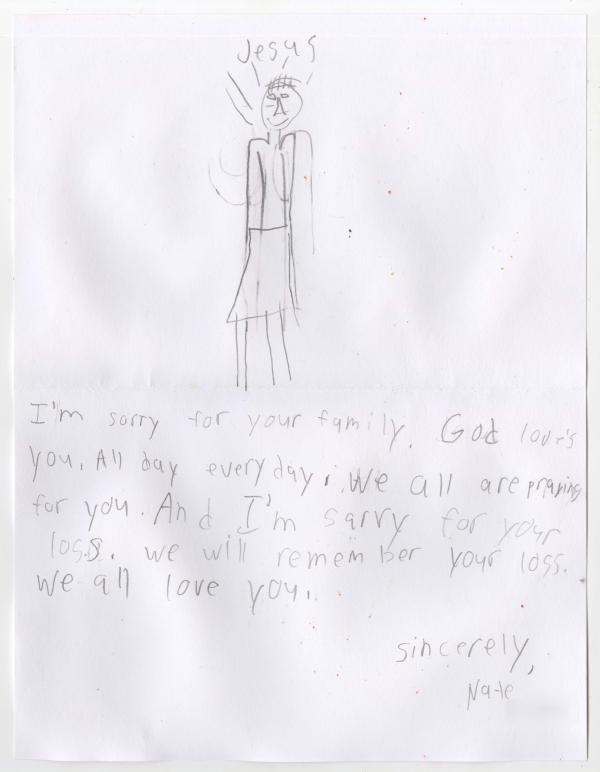 Jesus
I'm sorry for your family. God love's
you. All day every day. We all are praying
for you. And I'm sarry for your
loss. we will remember your loss.
We all love you.
sincerely,
Nate